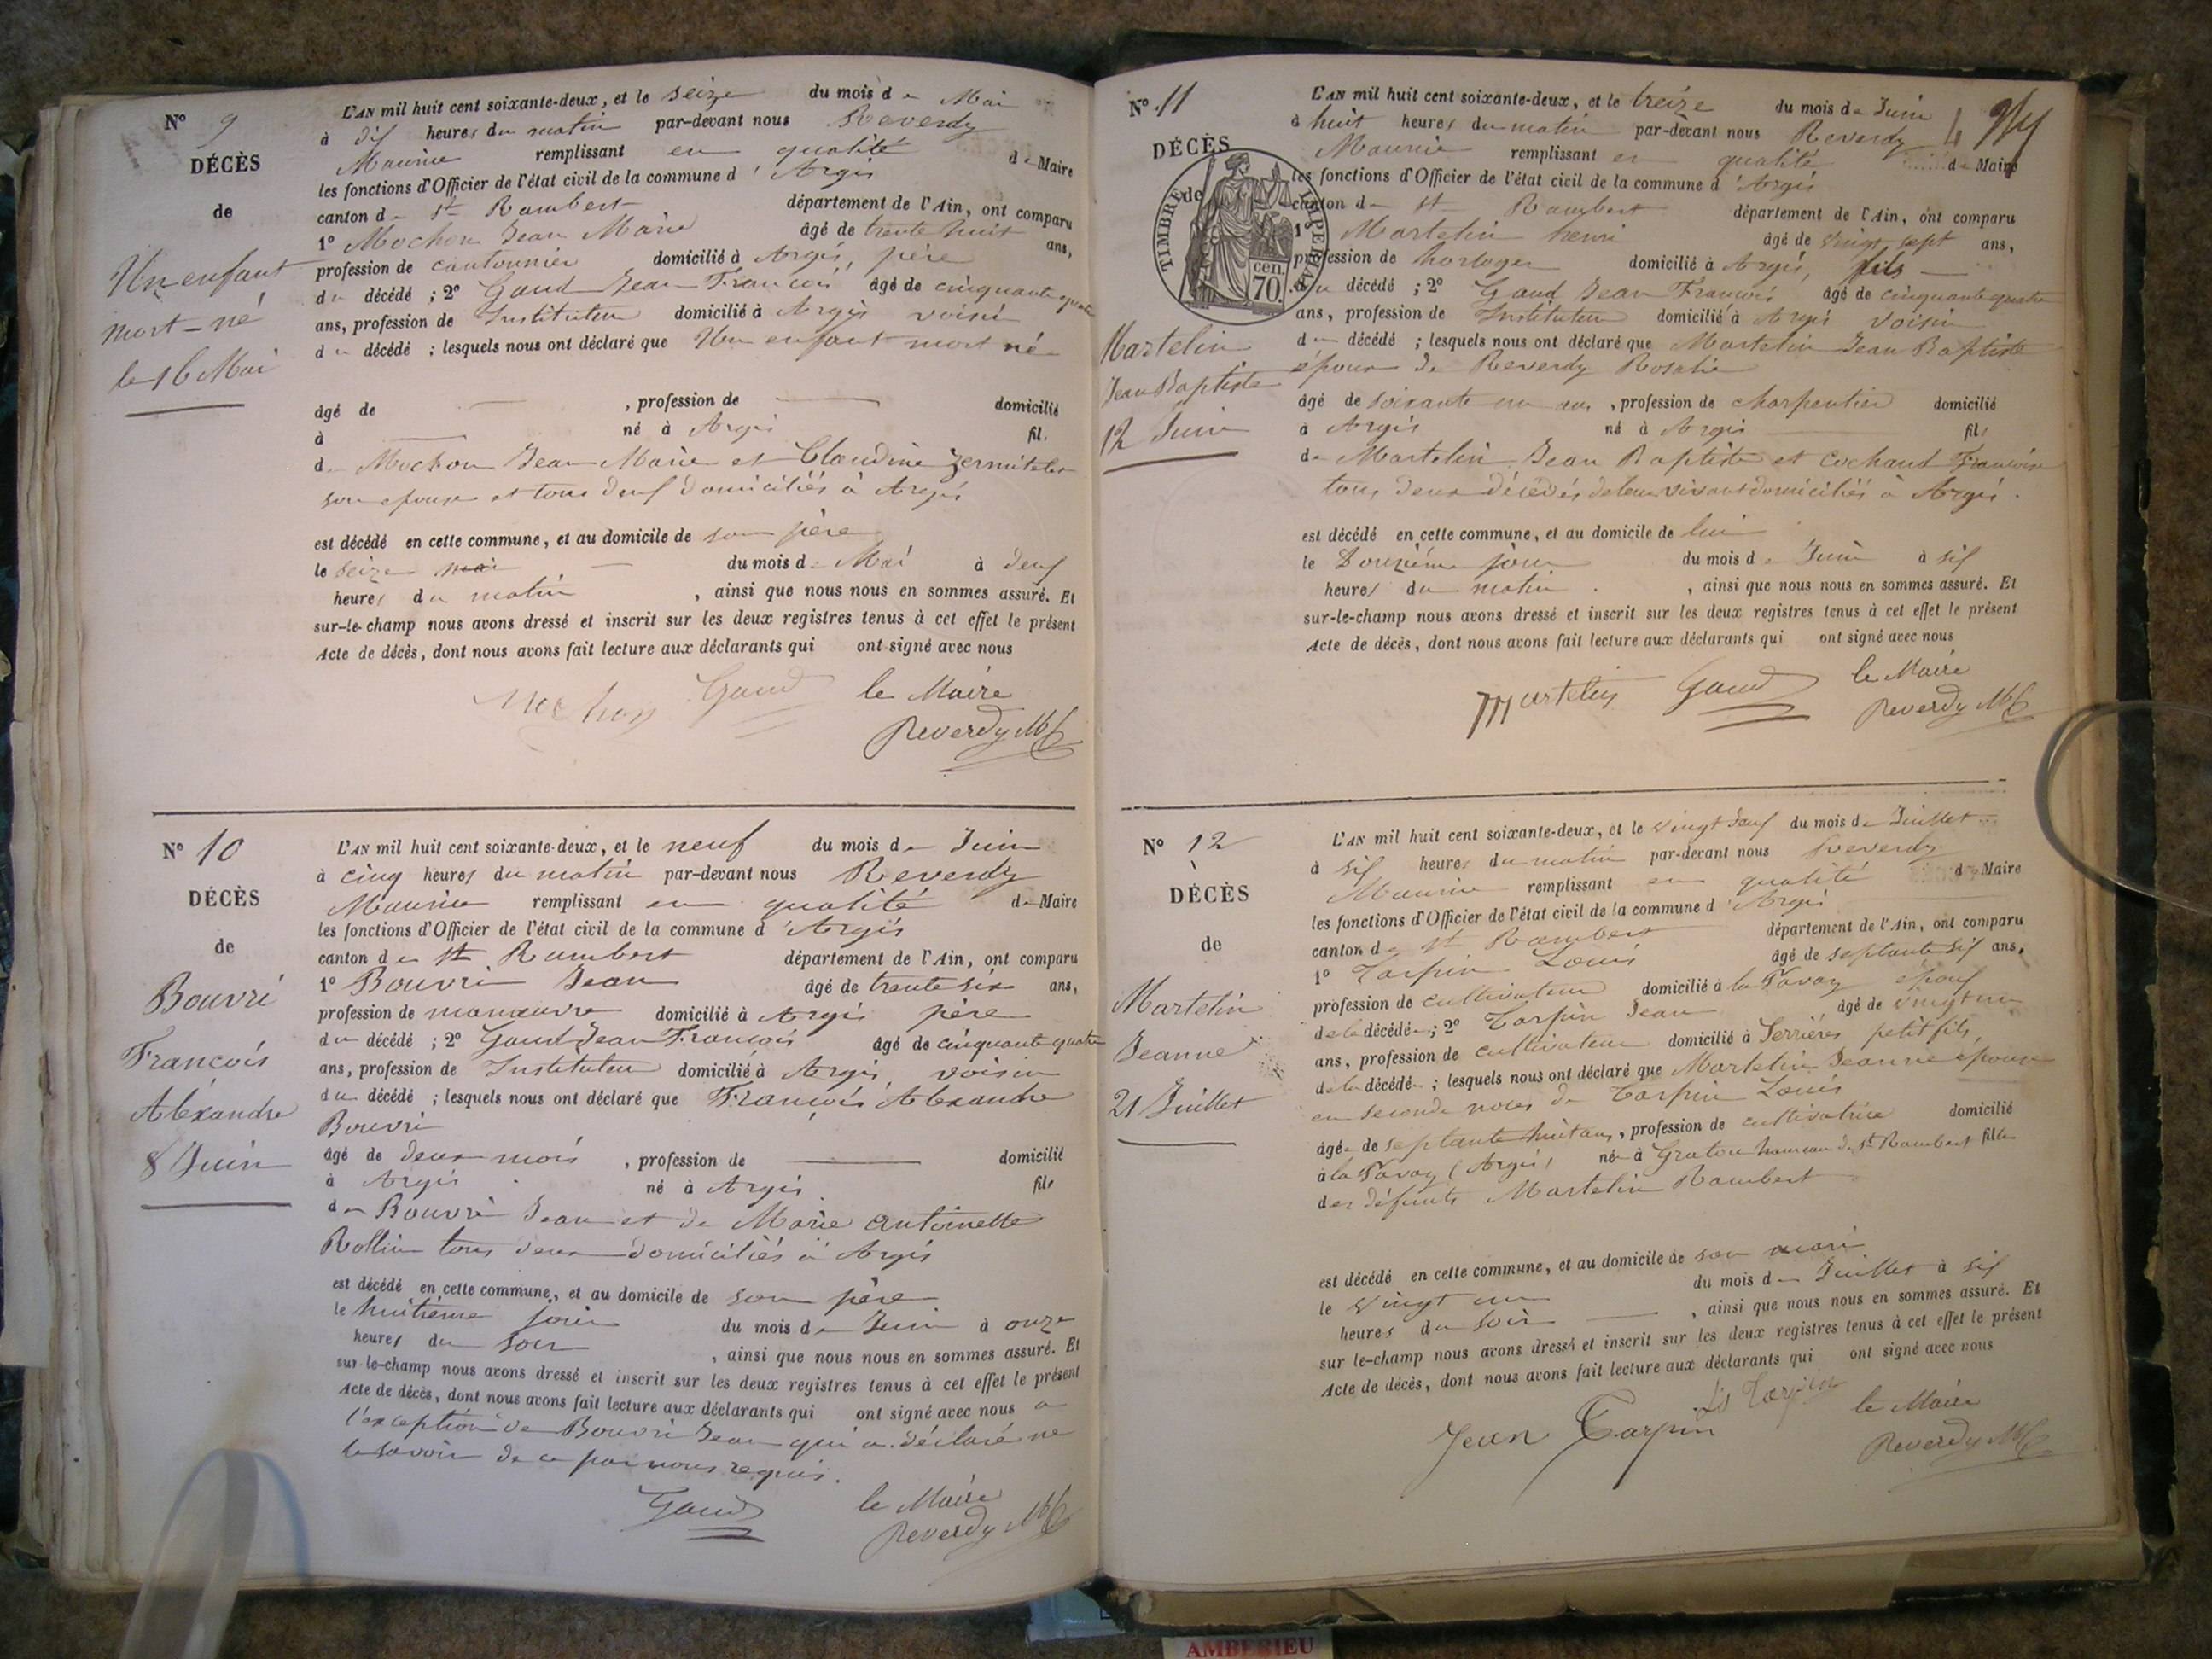 N° 9
DÉCÈS
de
Un enfant
mort-né
le 16 Mai
L'AN mil huit cent soixante-deux, et le seize du mois de Mai
à dix heures du matin par-devant nous Reverdy
Maurice remplissant en qualité de Maire
les fonctions d'Officier de l'état civil de la commune d'Argis
canton de St Rambert département de l'Ain, ont comparu
1° Mochon Jean Marie âgé de trente huit ans,
profession de cantonnier domicilié à Argis, père
du décédé ; 2° Gaud Jean François âgé de cinquante quatre
ans, profession de Instituteur domicilié à Argis voisin
du décédé ; lesquels nous ont déclaré que Un enfant mort né
âgé de — , profession de — domicilié
à — né à Argis fil.
de Mochon Jean Marie et Claudine
son épouse et tous deux domiciliés à Argis
est décédé en cette commune, et au domicile de son père
le seize mai — du mois de Mai à deux
heures du matin , ainsi que nous nous en sommes assuré. Et
sur-le-champ nous avons dressé et inscrit sur les deux registres tenus à cet effet le présent
Acte de décès, dont nous avons fait lecture aux déclarants qui ont signé avec nous
Mochon Gaud le Maire
Reverdy
N° 10
DÉCÈS
de
Bouvri
François
Alexandre
8 Juin
L'AN mil huit cent soixante-deux, et le neuf du mois de Juin
à cinq heures du matin par-devant nous Reverdy
Maurice remplissant en qualité de Maire
les fonctions d'Officier de l'état civil de la commune d'Argis
canton de St Rambert département de l'Ain, ont comparu
1° Bouvri Jean âgé de trente six ans,
profession de manœuvre domicilié à Argis père
du décédé ; 2° Gaud Jean François âgé de cinquante quatre
ans, profession de Instituteur domicilié à Argis voisin
du décédé ; lesquels nous ont déclaré que François Alexandre
Bouvri
âgé de deux mois , profession de — domicilié
à Argis . né à Argis . fils
de Bouvri Jean et de Marie Antoinette
Rollin tous deux domiciliés à Argis
est décédé en cette commune, et au domicile de son père
le huitième jour du mois de Juin à onze
heures du soir , ainsi que nous nous en sommes assuré. Et
sur-le-champ nous avons dressé et inscrit sur les deux registres tenus à cet effet le présent
Acte de décès, dont nous avons fait lecture aux déclarants qui ont signé avec nous a
l'exception de Bouvri Jean qui a déclaré ne
le savoir de ce par nous requis.
Gaud le Maire
Reverdy
N° 11
DÉCÈS
de
TIMBRE IMPÉRIAL
70 cen.
Martelin
Jean Baptiste
12 Juin
L'AN mil huit cent soixante-deux, et le treize du mois de Juin
à huit heures du matin par-devant nous Reverdy 4
Maurice remplissant en qualité de Maire
les fonctions d'Officier de l'état civil de la commune d'Argis
canton de St Rambert département de l'Ain, ont comparu
1° Martelin henri âgé de vingt sept ans,
profession de horloger domicilié à Argis, fils —
du décédé ; 2° Gaud Jean François âgé de cinquante quatre
ans, profession de Instituteur domicilié à Argis voisin
du décédé ; lesquels nous ont déclaré que Martelin Jean Baptiste
époux de Reverdy Rosalie
âgé de soixante un ans , profession de charpentier domicilié
à Argis né à Argis — fils
de Martelin Jean Baptiste et Cochaud Françoise
tous deux décédés de leur vivant domiciliés à Argis .
est décédé en cette commune, et au domicile de lui
le Douzième jour du mois de Juin à six
heures du matin . , ainsi que nous nous en sommes assuré. Et
sur-le-champ nous avons dressé et inscrit sur les deux registres tenus à cet effet le présent
Acte de décès, dont nous avons fait lecture aux déclarants qui ont signé avec nous
Martelin Gaud le Maire
Reverdy
N° 12
DÉCÈS
de
Martelin
Jeanne
21 Juillet
L'AN mil huit cent soixante-deux, et le vingt deux du mois de Juillet
à six heures du matin par-devant nous Reverdy
Maurice remplissant en qualité de Maire
les fonctions d'Officier de l'état civil de la commune d'Argis
canton de St Rambert département de l'Ain, ont comparu
1° Tarpin Louis âgé de septante six ans,
profession de cultivateur domicilié à la Favay époux
de la décédée ; 2° Tarpin Jean âgé de vingt un
ans, profession de cultivateur domicilié à Serrières petit fils,
de la décédée ; lesquels nous ont déclaré que Martelin Jeanne épouse
en seconde noces de Tarpin Louis
âgée de septante huit ans, profession de cultivatrice domicilié
à la Favay (Argis) née à Graton hameau de St Rambert fille
des défunts Martelin Rambert
est décédé en cette commune, et au domicile de son mari
le vingt un du mois de Juillet à six
heures du soir — , ainsi que nous nous en sommes assuré. Et
sur le-champ nous avons dressé et inscrit sur les deux registres tenus à cet effet le présent
Acte de décès, dont nous avons fait lecture aux déclarants qui ont signé avec nous
Jean Tarpin Ls Tarpin le Maire
Reverdy
AMBERIEU